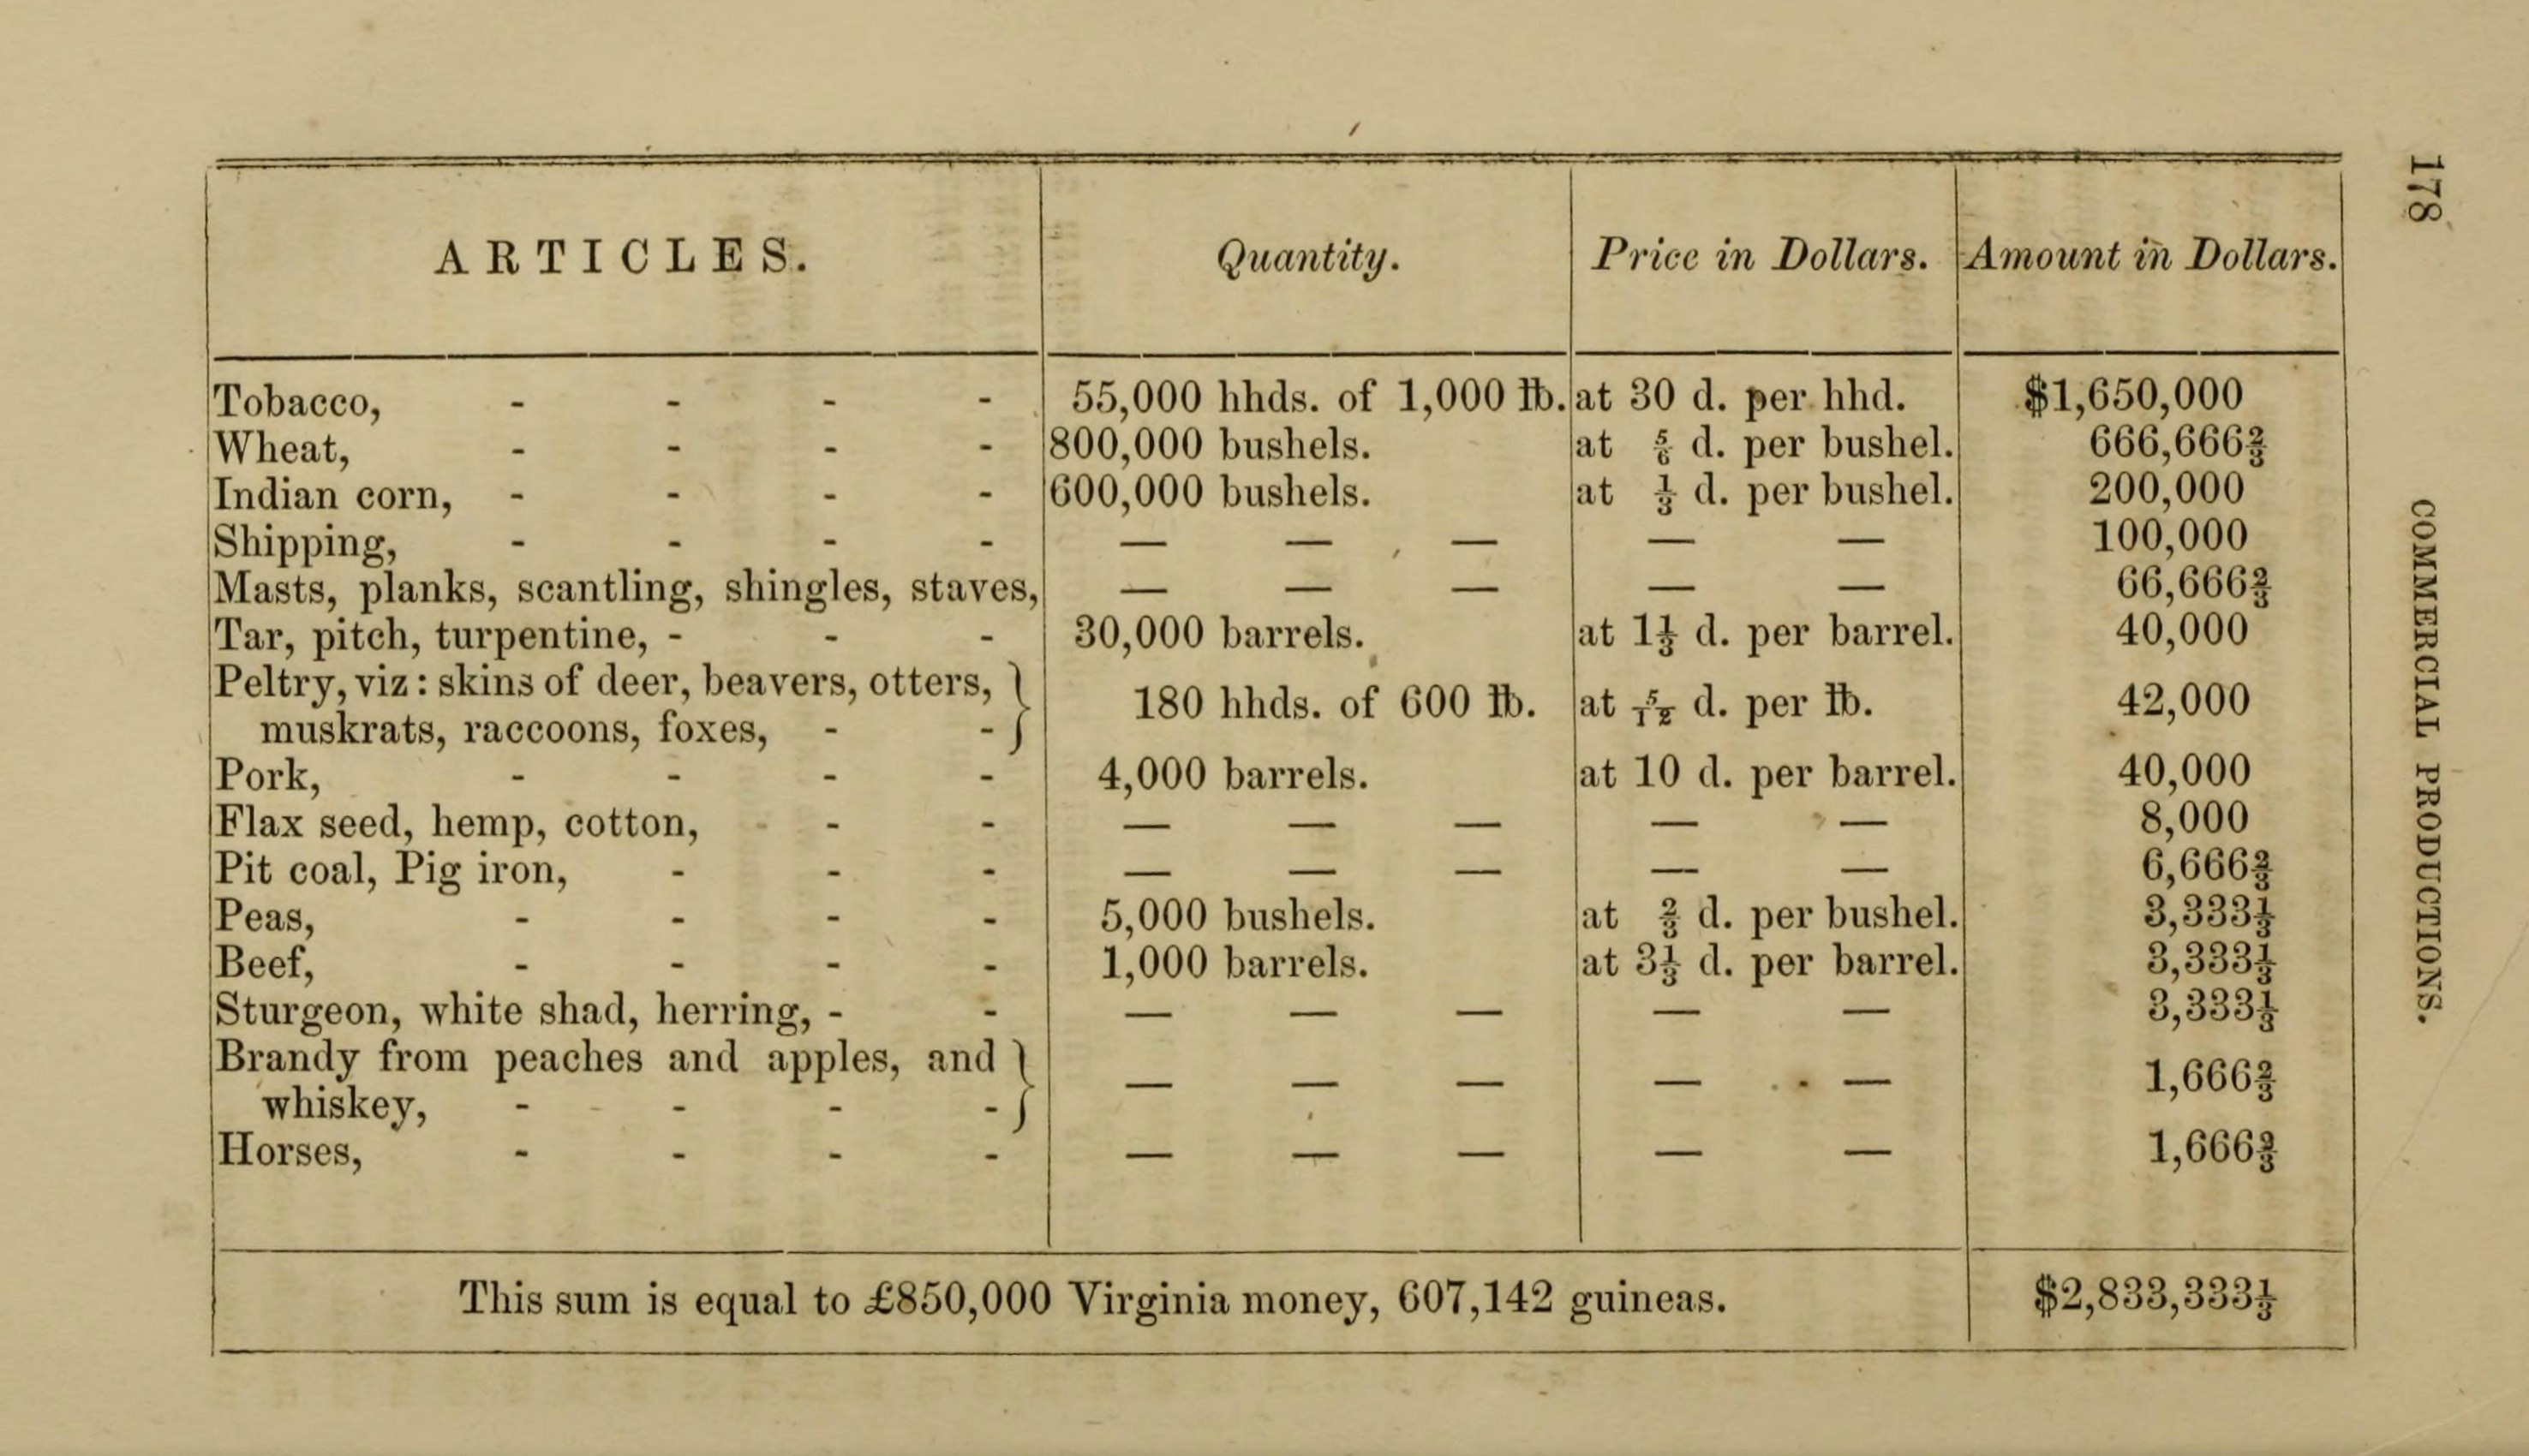 178 COMMERCIAL PRODUCTIONS.
ARTICLES. Quantity. Price in Dollars. Amount in Dollars.
Tobacco, - - - - 55,000 hhds. of 1,000 ℔. at 30 d. per hhd. $1,650,000
Wheat, - - - - 800,000 bushels. at ⅚ d. per bushel. 666,666⅔
Indian corn, - - - - 600,000 bushels. at ⅓ d. per bushel. 200,000
Shipping, - - - - — — — — — 100,000
Masts, planks, scantling, shingles, staves, — — — — — 66,666⅔
Tar, pitch, turpentine, - - - 30,000 barrels. at 1⅓ d. per barrel. 40,000
Peltry, viz: skins of deer, beavers, otters,
muskrats, raccoons, foxes, - - } 180 hhds. of 600 ℔. at 5/12 d. per ℔. 42,000
Pork, - - - - 4,000 barrels. at 10 d. per barrel. 40,000
Flax seed, hemp, cotton, - - — — — — — 8,000
Pit coal, Pig iron, - - - — — — — — 6,666⅔
Peas, - - - - 5,000 bushels. at ⅔ d. per bushel. 3,333⅓
Beef, - - - - 1,000 barrels. at 3⅓ d. per barrel. 3,333⅓
Sturgeon, white shad, herring, - - — — — — — 3,333⅓
Brandy from peaches and apples, and
whiskey, - - - - } — — — — — 1,666⅔
Horses, - - - - — — — — — 1,666⅔
This sum is equal to £850,000 Virginia money, 607,142 guineas. $2,833,333⅓